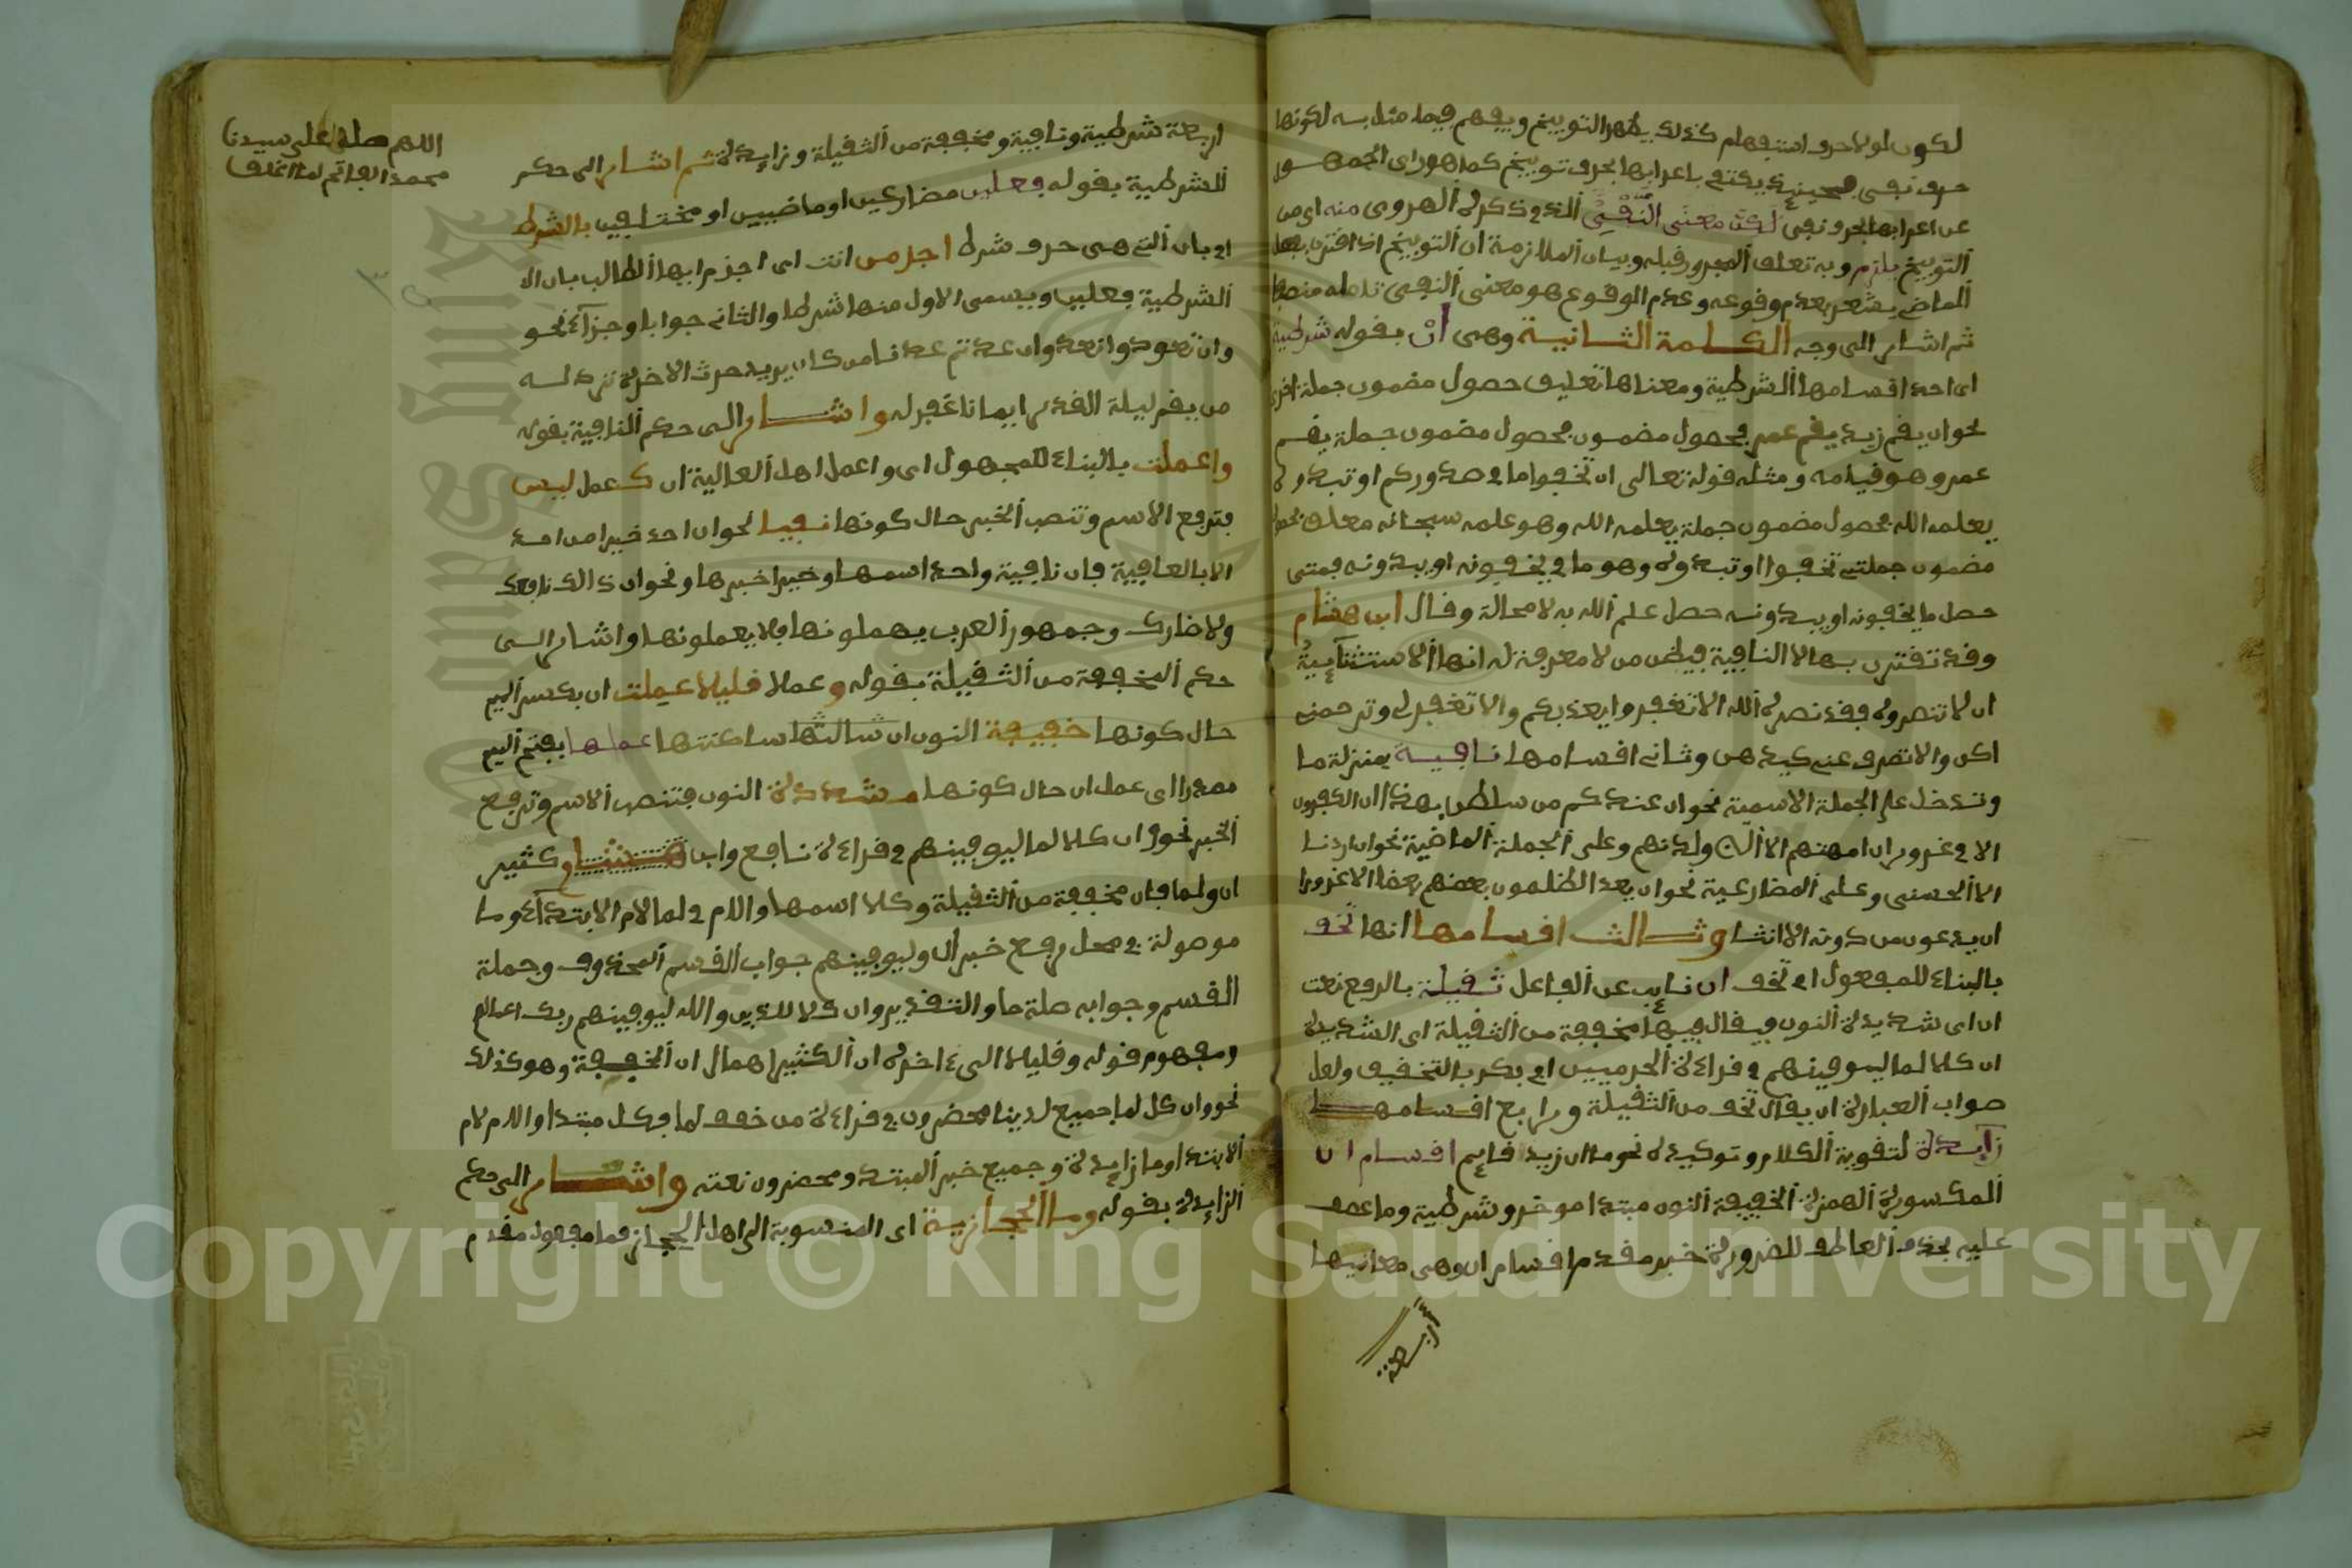 لكون لولا حرف استفهام كذلك يظهر التوبيخ ويفهم فيما مثل به لكونها
حرف نفي فحينئذ يكتفى باعرابها بحرف توبيخ كما هو راى الجمهور
عن اعرابها بحرف نفي لكن معنى النفي الذى ذكره الهروى منه اى من
التوبيخ يلزم وبه تعلق المجرور قبله وبيان الملازمة ان التوبيخ اذا اقترن بفعل
الماضى يشعر بعدم وقوعه وعدم الوقوع هو معنى النفي تامله منصفا
ثم اشار الى وجه الكلمة الثانية وهى ان بقوله شرطية
اى احد اقسامها الشرطية ومعناها تعليق حصول مضمون جملة اخرى
نحو ان يقم زيد يقم عمر فحصول مضمون بحصول مضمون جملة يقم
عمرو هو قيامه ومثله قوله تعالى ان تخفوا ما في صدوركم او تبدوه
يعلمه الله فحصول مضمون جملة يعلمه الله وهو علمه سبحانه معلق بحصول
مضمون جملتى تخفوا او تبدوه وهو ما يخفونه او يبدونه فمتى
حصل ما يخفونه او يبدونه حصل علم الله به لا محالة وقال ابن هشام
وقد تقترن بها لا النافية فيظن من لا معرفة له انها الا الاستثنائية
ان لا تنصروه فقد نصره الله الا تنفروا يعذبكم والا تغفر لى وترحمنى
اكن والا تصرف عنى كيدهن وثانى اقسامها نافية بمنزلة ما
وتدخل على الجملة الاسمية نحو ان عندكم من سلطن بهذا ان الكفرون
الا في غرور ان امهتهم الا الئ ولدنهم وعلى الجملة الماضية نحو ان اردنا
الا الحسنى وعلى المضارعية نحو ان يعد الظلمون بعضهم بعضا الا غرورا
ان يدعون من دونه الا انثا وثالث اقسامها انها تخف
بالبناء للمفعول اى تخف ان نايب عن الفاعل ثقيلة بالرفع نعت
ان اى شديدة النون فيقال فيها مخففة من الثقيلة اى الشديدة
ان كلا لما ليوفينهم في قراءة الحرميين وابى بكر بالتخفيف ولعل
صواب العبارة ان يقال تخف من الثقيلة ورابع اقسامها
زايدة لتقوية الكلام وتوكيده نحو ما ان زيد قايم اقسام ان
المكسورة الهمزة الخفيفة النون مبتدا موخر وشرطية وما عطف
عليه بحذف العاطف للضرورة خبر مقدم اقسام ان وهى معانيها
اربعة
اربعة شرطية ونافية ومخففة من الثقيلة وزايدة ثم اشار الى حكم
الشرطية بقوله فعلين مضارعين او ماضيين او مختلفين بالشرط
اى بان التى هى حرف شرط اجزمن انت اى اجزم ايها الطالب بان الا
الشرطية فعلين ويسمى الاول منها شرطا والثانى جوابا وجزاء نحو
وان تعودوا نعد وان عدتم عدنا من كان يريد حرث الاخرة نزد له
من يقم ليلة القدر ايمانا غفر له واشار الى حكم النافية بقوله
واعملت بالبناء للمجهول اى واعمل اهل العالية ان كعمل ليس
فترفع الاسم وتنصب الخبر حال كونها نفيا نحو ان احد خيرا من احد
الا بالعافية فان نافية واحد اسمها وخيرا خبرها ونحو ان ذالك نافعك
ولا ضارك وجمهور العرب يهملونها فلا يعملونها واشار الى
حكم المخففة من الثقيلة بقوله وعملا قليلا عملت ان بكسر الميم
حال كونها خفيفة النون ان شالتها ساكنتها عملها بفتح الميم
مصدرا اى عمل ان حال كونها مشددة النون فتنصب الاسم وترفع
الخبر نحو وان كلا لما ليوفينهم في قراءة نافع وابن كثير
ان ولما فان مخففة من الثقيلة وكلا اسمها واللام في لما لام الابتداء وما
موصولة في محل رفع خبر ان وليوفينهم جواب القسم المحذوف وجملة
القسم وجوابه صلة ما والتقدير وان كلا للذين والله ليوفينهم ربك اعمالهم
ومفهوم قوله وقليلا الى ءاخره ان الكثير اهمال ان الخفيفة وهو كذلك
نحو وان كل لما جميع لدينا محضرون في قراءة من خفف لما فكل مبتدا واللام لام
الابتدا وما زايدة وجميع خبر المبتدا ومحضرون نعته واشار الى حكم
الزايدة بقوله وما الحجازية اى المنسوبة الى اهل الحجاز فما مفعول مقدم
اللهم صل على سيدنا
محمد الفاتح لما اغلق
Copyright © King Saud University